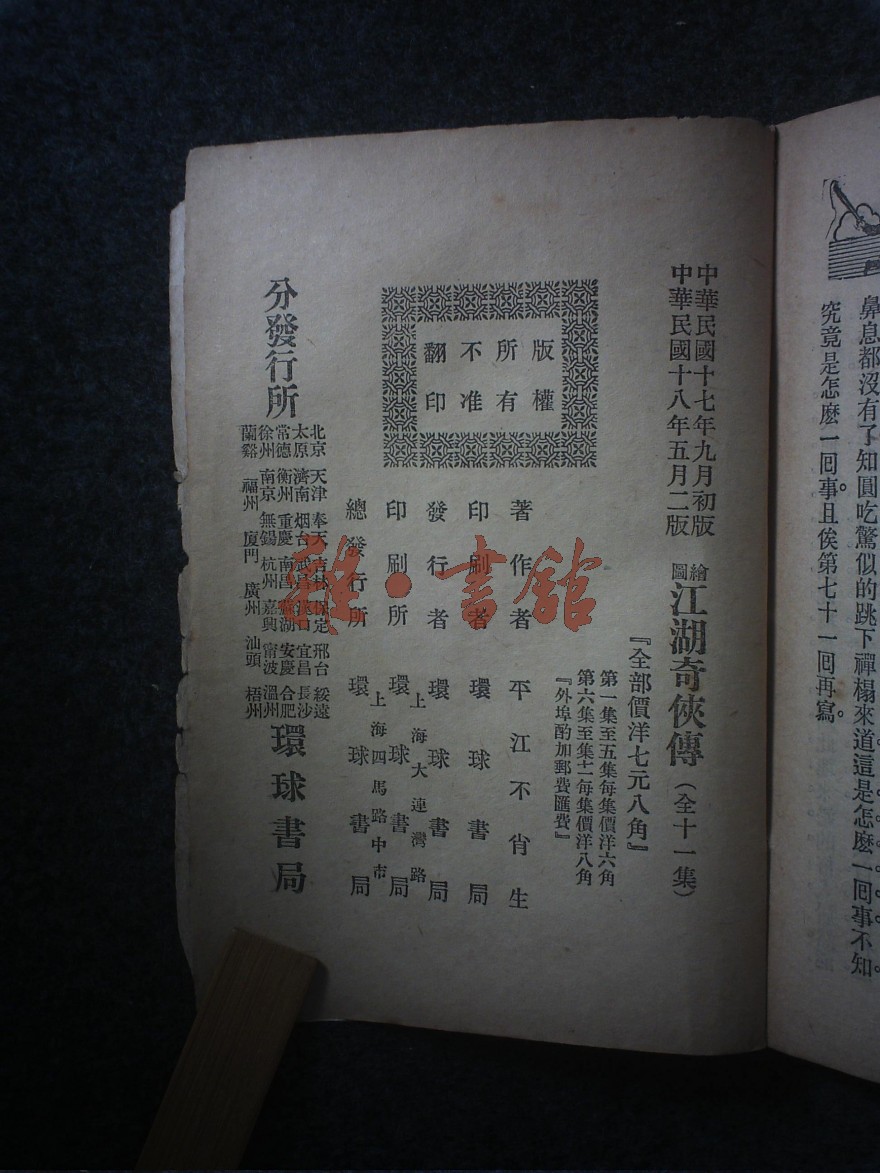 鼻息都沒有了知圓吃驚似的跳下禪榻來道這是怎麽一囘事不知
究竟是怎麽一囘事且俟第七十一囘再寫。
中華民國十七年九月初版
中華民國十八年五月二版
繪圖 江湖奇俠傳（全十一集）
『全部價洋七元八角』
第一集至五集每集價洋六角
第六集至集十一每集價洋八角
『外埠酌加郵費匯費』
版權
所有
不准
翻印
著作者 平江不肖生
印刷者 環球書局
發行者 環球書局
上海大連灣路
印刷所 環球書局
上海四馬路中市
總發行所 環球書局
分發行所
北京 天津 奉天 吉林 保定 邢台 綏遠
太原 濟南 烟台 武昌 漢口 宜昌 長沙
常德 衡州 重慶 南昌 蕪湖 安慶 合肥
徐州 南京 無錫 杭州 嘉興 甯波 溫州
蘭谿 福州 廈門 廣州 汕頭 梧州
環球書局
雅·書館